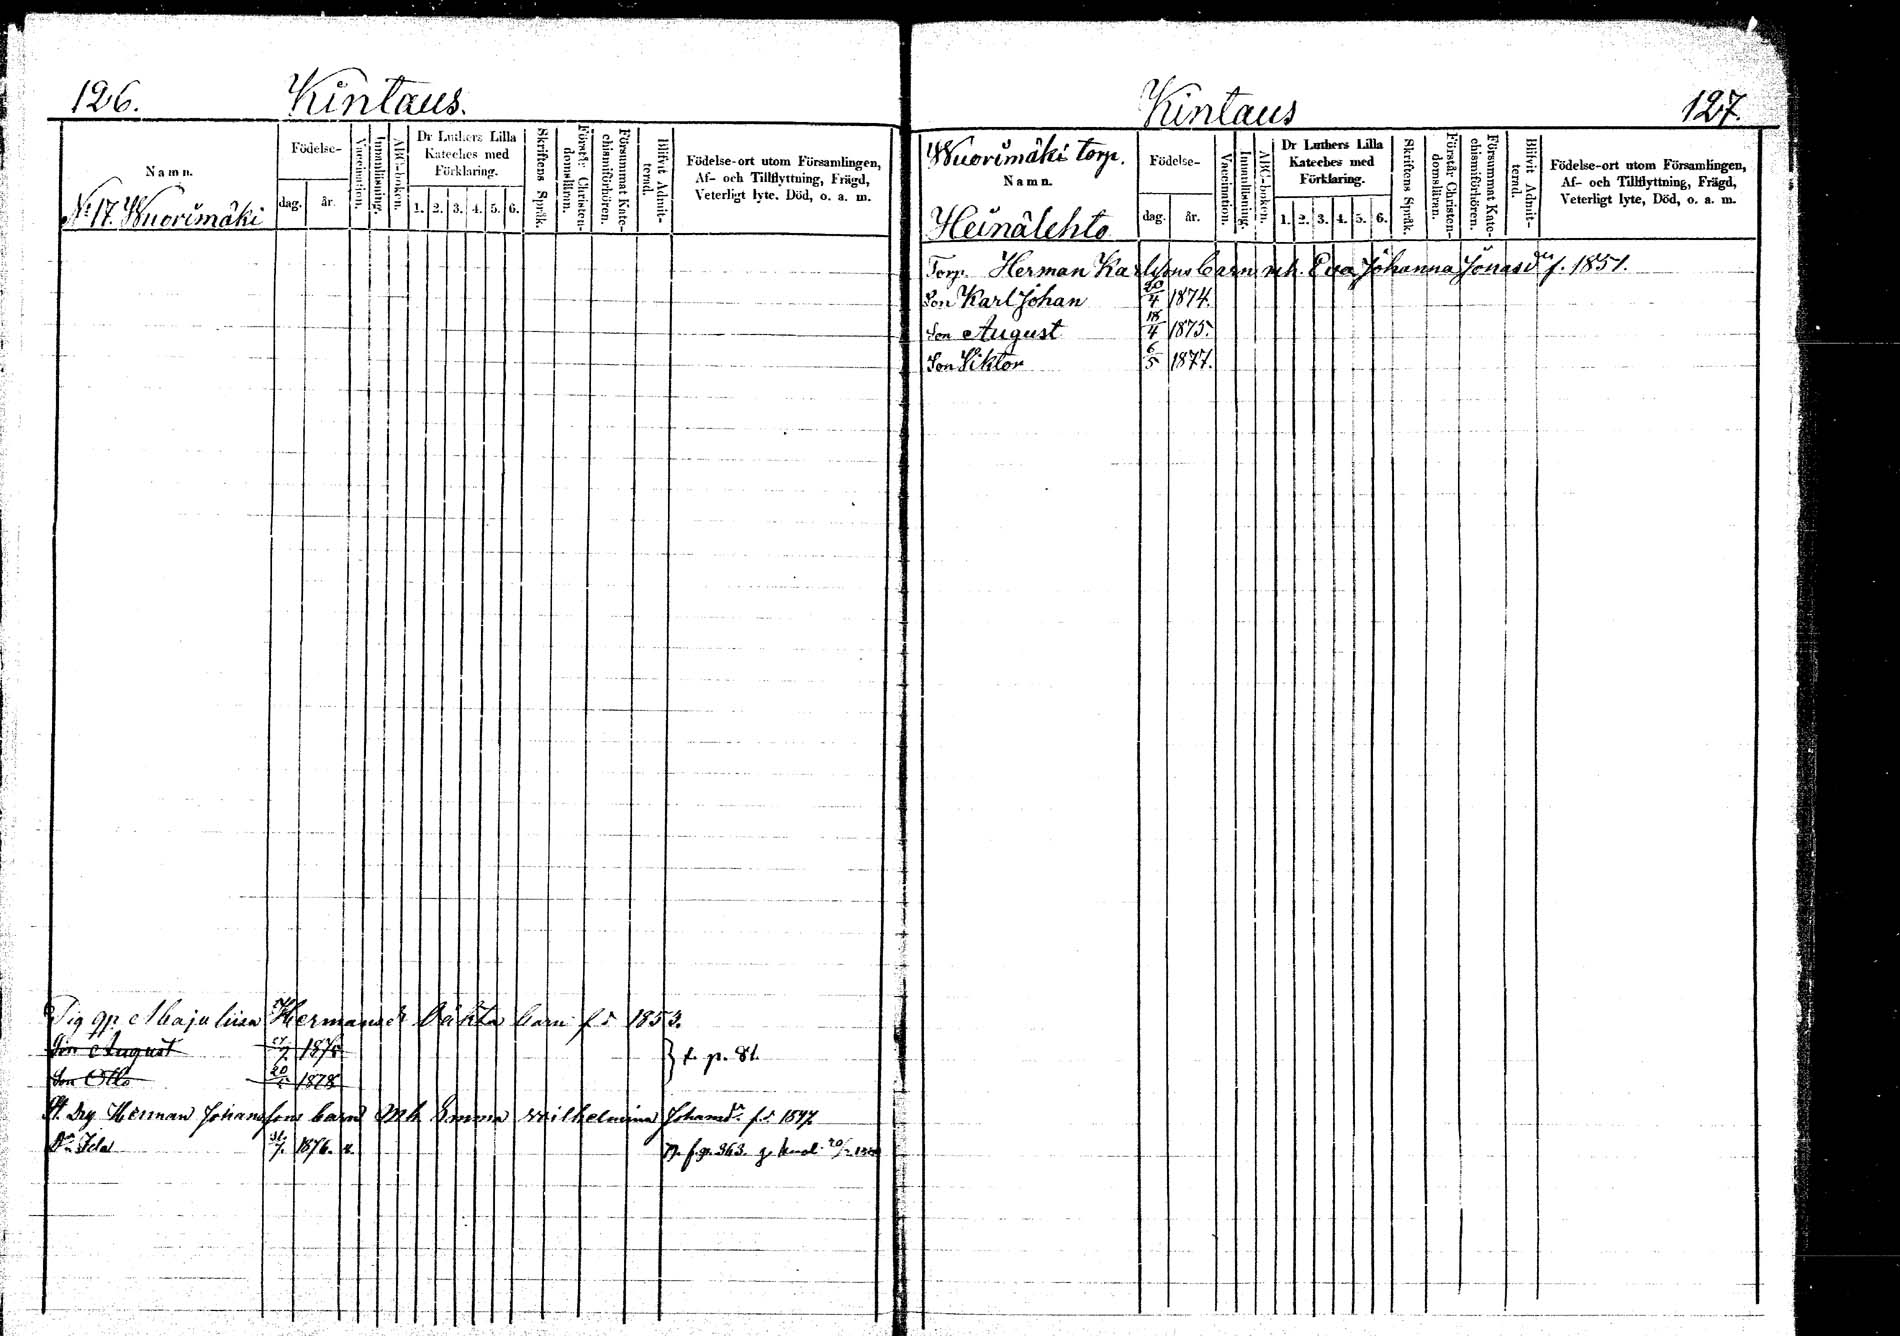 126. Kintaus.
Namn.
No 17. Wuorimäki
Födelse-
dag. år.
Vaccination.
Innanläsning.
ABC-boken.
Dr Luthers Lilla
Kateches med
Förklaring.
1. 2. 3. 4. 5. 6.
Skriftens Språk.
Förstår Christen-
domsläran.
Försummat Kate-
chismiförhören.
Blifvit Admit-
terad.
Födelse-ort utom Församlingen,
Af- och Tillflyttning, Frägd,
Veterligt lyte. Död, o. a. m.
Pig gp. Maja Liisa Hermansdr oäkta barn fd 1853.
Son August 1875
Son Otto 20 1878
} t. p. 81.
St. Drg Herman Johanssons barn Mh Emma Wilhelmina Johansdr. fd. 1847
Dr. Ida 7. 1876. v. 363. 20
Kintaus 127.
Wuorimäki torp.
Namn.
Heinälehto
Födelse-
dag. år.
Vaccination.
Innanläsning.
ABC-boken.
Dr Luthers Lilla
Kateches med
Förklaring.
1. 2. 3. 4. 5. 6.
Skriftens Språk.
Förstår Christen-
domsläran.
Försummat Kate-
chismiförhören.
Blifvit Admit-
terad.
Födelse-ort utom Församlingen,
Af- och Tillflyttning, Frägd,
Veterligt lyte, Död, o. a. m.
Torp. Herman Karlssons barn mh. Eva Johanna Jonasdr f. 1851.
Son Karl Johan 20/4 1874.
Son August 18/4 1875.
Son Viktor 6/5 1877.